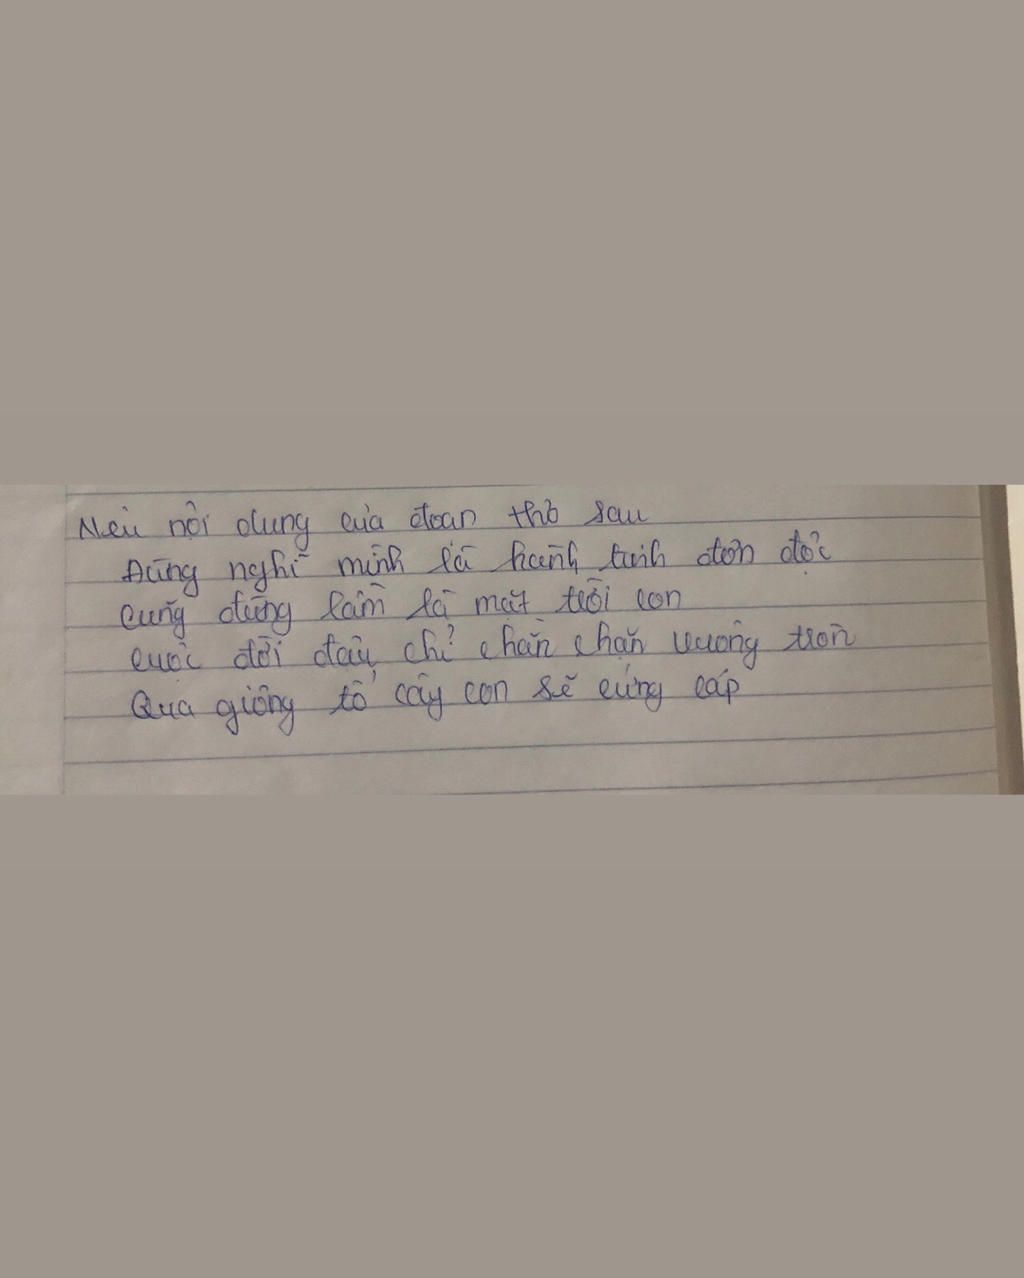 Nêu nội dung của đoạn thơ sau
Đừng nghĩ mình là hành tinh đơn độc
Cũng đừng lầm là mặt trời con
Cuộc đời đâu chỉ chằn chặn vuông tròn
Qua giông tố cây con sẽ cứng cáp